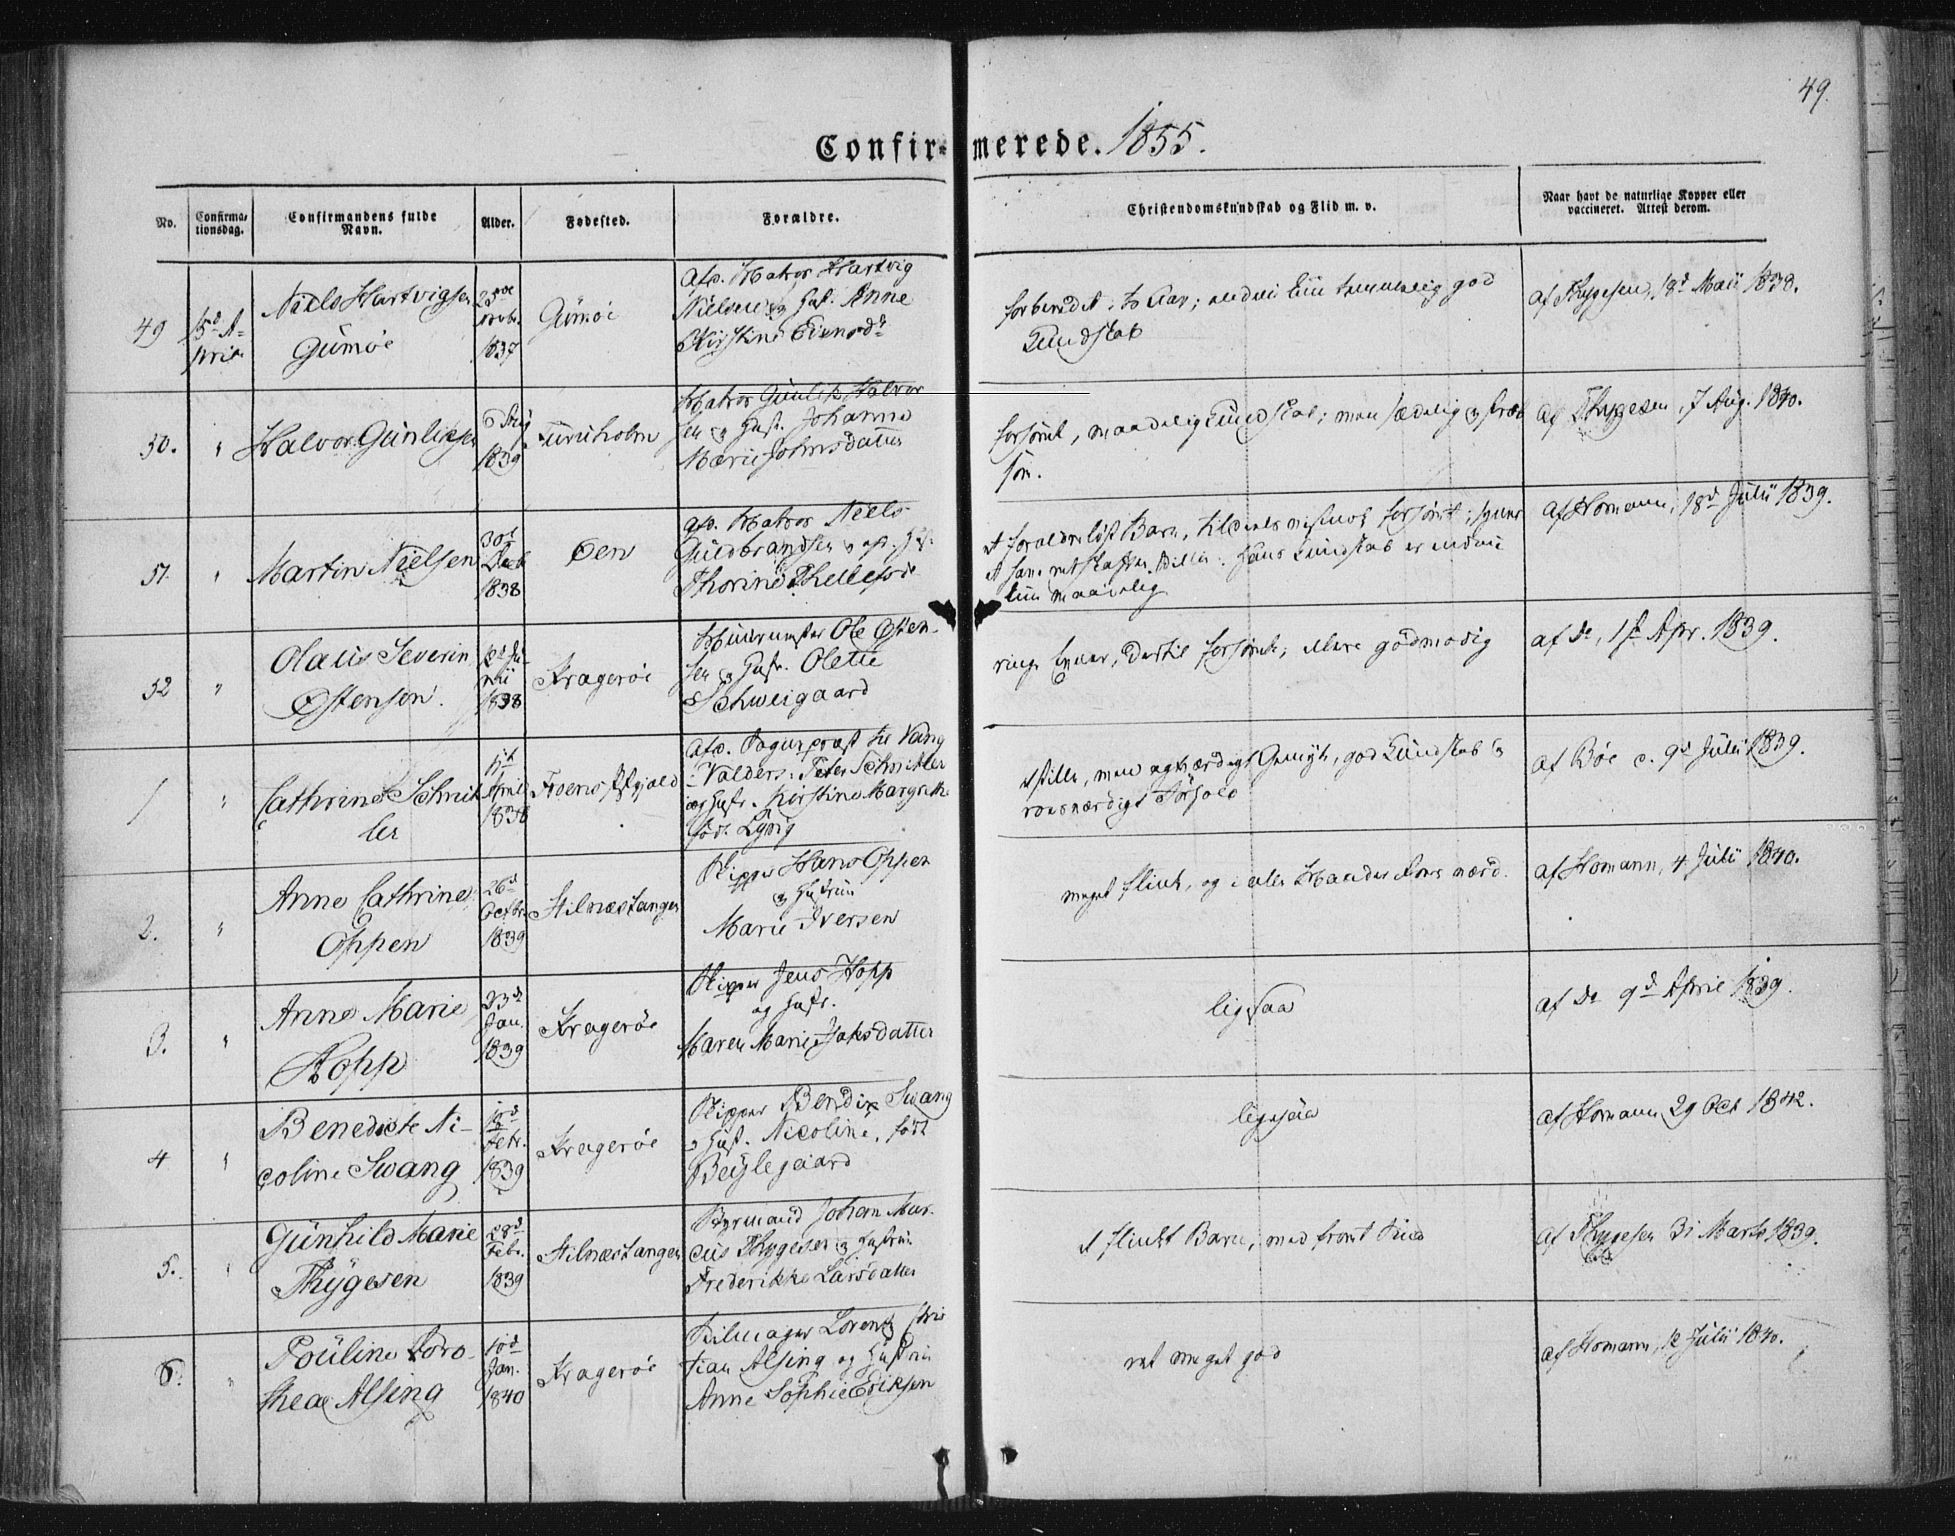 49.
Confirmerede. 1855.
No.
Confirmationsdag.
Confirmandens fulde Navn.
Alder.
Fødested.
Forældre.
Christendomskundskab og Flid m. v.
Naar havt de naturlige Kopper eller vaccineret. Attest derom.
49
15d A-
pril
Niels Hartvigsen
Gumøe
1837
Gumøe
Afd. Matros Hartvig
Nielsen og Hust. Anne
Kirstine
god
Kundskab
af Thygesen, 18d Maii 1838.
50.
"
Halvor Gunlepsen
6 Aug
1839
Furuholm
Matros Gunlep Halvor
sen og Hust. Johanne
Marie Johnsdatter
forsømt, maadelig Kundskab; men sædelig og
som.
af Thygesen, 7 Aug. 1840.
51.
"
Martin Nielsen
30d
Decb
1838
Øen
afd. Matros Niels
Guldbrandsen og afd. Hst.
Thorine
et forældreløst Barn, forsømt; synes
Hans Kundskab er
kun maadelig
af Homann, 18d Julii 1839.
52
"
Olaus Severin
Østensen.
1838
Kragerøe
Muurmester Ole Østen-
sen og Hustr. Olette
Schweigaard
ringe Evner, dertil forsømt, ellers godmodig
af do, 1st Apr. 1839.
1
"
Cathrine Schmit
ler
April
1838
Afd. Sogneprest til Vang
i Valders: Peter Schmitler
og Hustr. Kirstine Margrethe
født
et stille, men Gemyt, god Kundskab og
roesværdigt Forhold
af Bøe d. 9d Julii 1839.
2.
"
Anne Cathrine
Oppen
26d
Octbr.
1839
Stilnæstangen
Skipper Hans Oppen
og Hustrue
Marie Iversen
meget flink, og i alle Maader Roes værd.
af Homann, 4 Julii 1840.
3.
"
Anne Marie
Hopp
23d
Jan.
1839
Kragerøe
Skipper Jens Hopp
og Hustr.
Maren Marie
ligesaa
af do 9d April 1839.
4
"
Benedicte Ni-
coline Swang
Febr.
1839
Kragerøe
Skipper Bendix Swang
og Hust. Nicoline, født
Beylegaard
ligesaa
af Homann 29 Oct 1842.
5.
"
Gunhild Marie
Thygesen
28d
Febr.
1839
Stilnæstangen
Styrmand Johan Mar-
cus Thygesen og Hustrue
Frederikke Larsdatter
et flinkt Barn, med fromt Sind
af Thygesen 31 Marts 1839.
6.
"
Pouline Doro-
thea Alsing
10d
Jan.
1840
Kragerøe
Seilmager Lorentz Chris
tian Alsing og Hustrue
Anne Sophie Eriksen
ret meget god
af Homann, 12 Julii 1840.